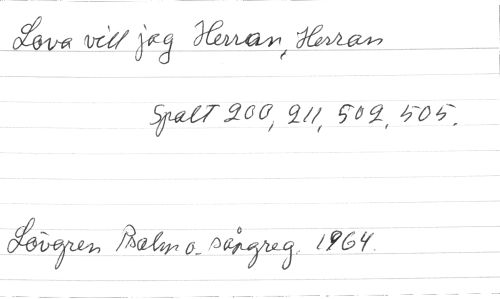 Lova vill jag Herran, Herran
Spalt 200, 211, 502, 505.
Lövgren Psalm o. sångreg. 1964.